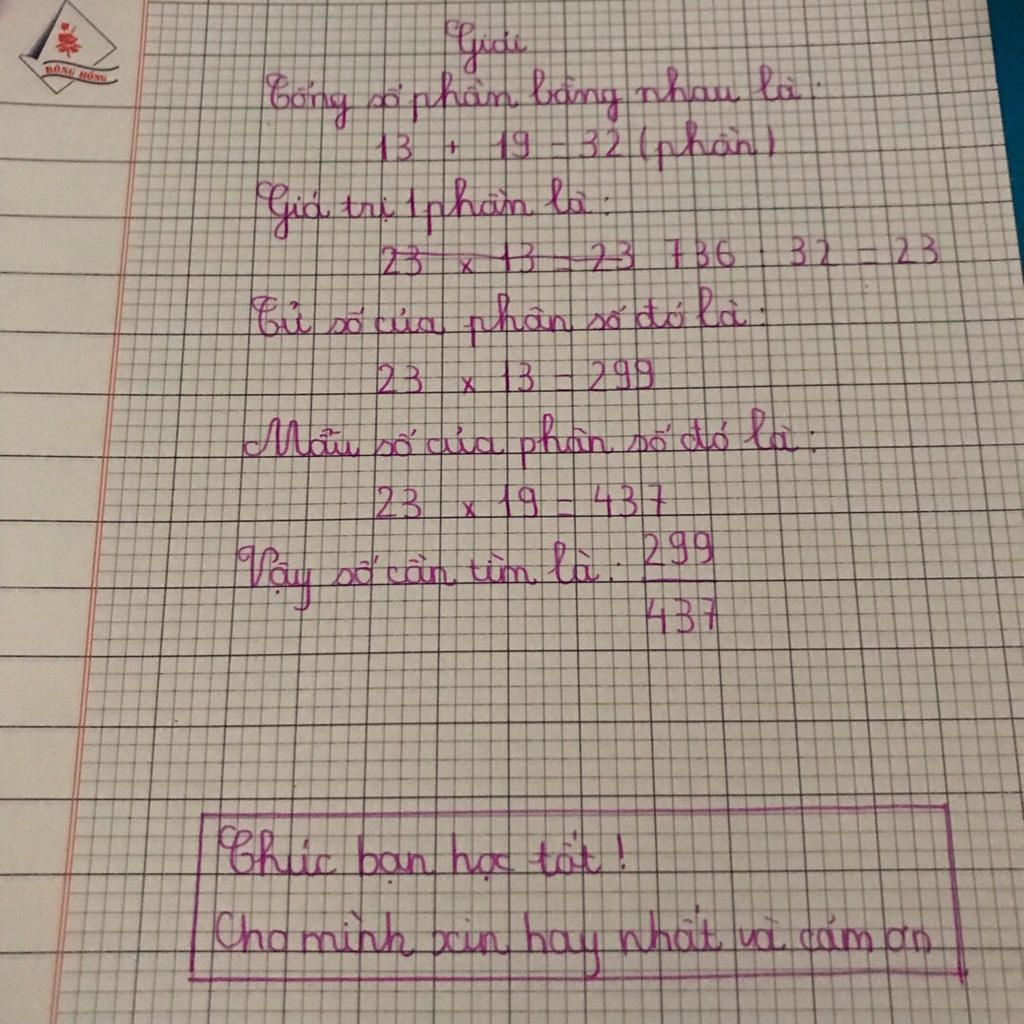 HỒNG HÔNG
Giải
Tổng số phần bằng nhau là:
13 + 19 = 32 (phần)
Giá trị 1 phần là:
23 x 13 = 23 736 : 32 = 23
Tử số của phân số đó là:
23 x 13 = 299
Mẫu số của phân số đó là:
23 x 19 = 437
Vậy số cần tìm là: 299
437
Chúc bạn học tốt!
Cho mình xin hay nhất và cám ơn